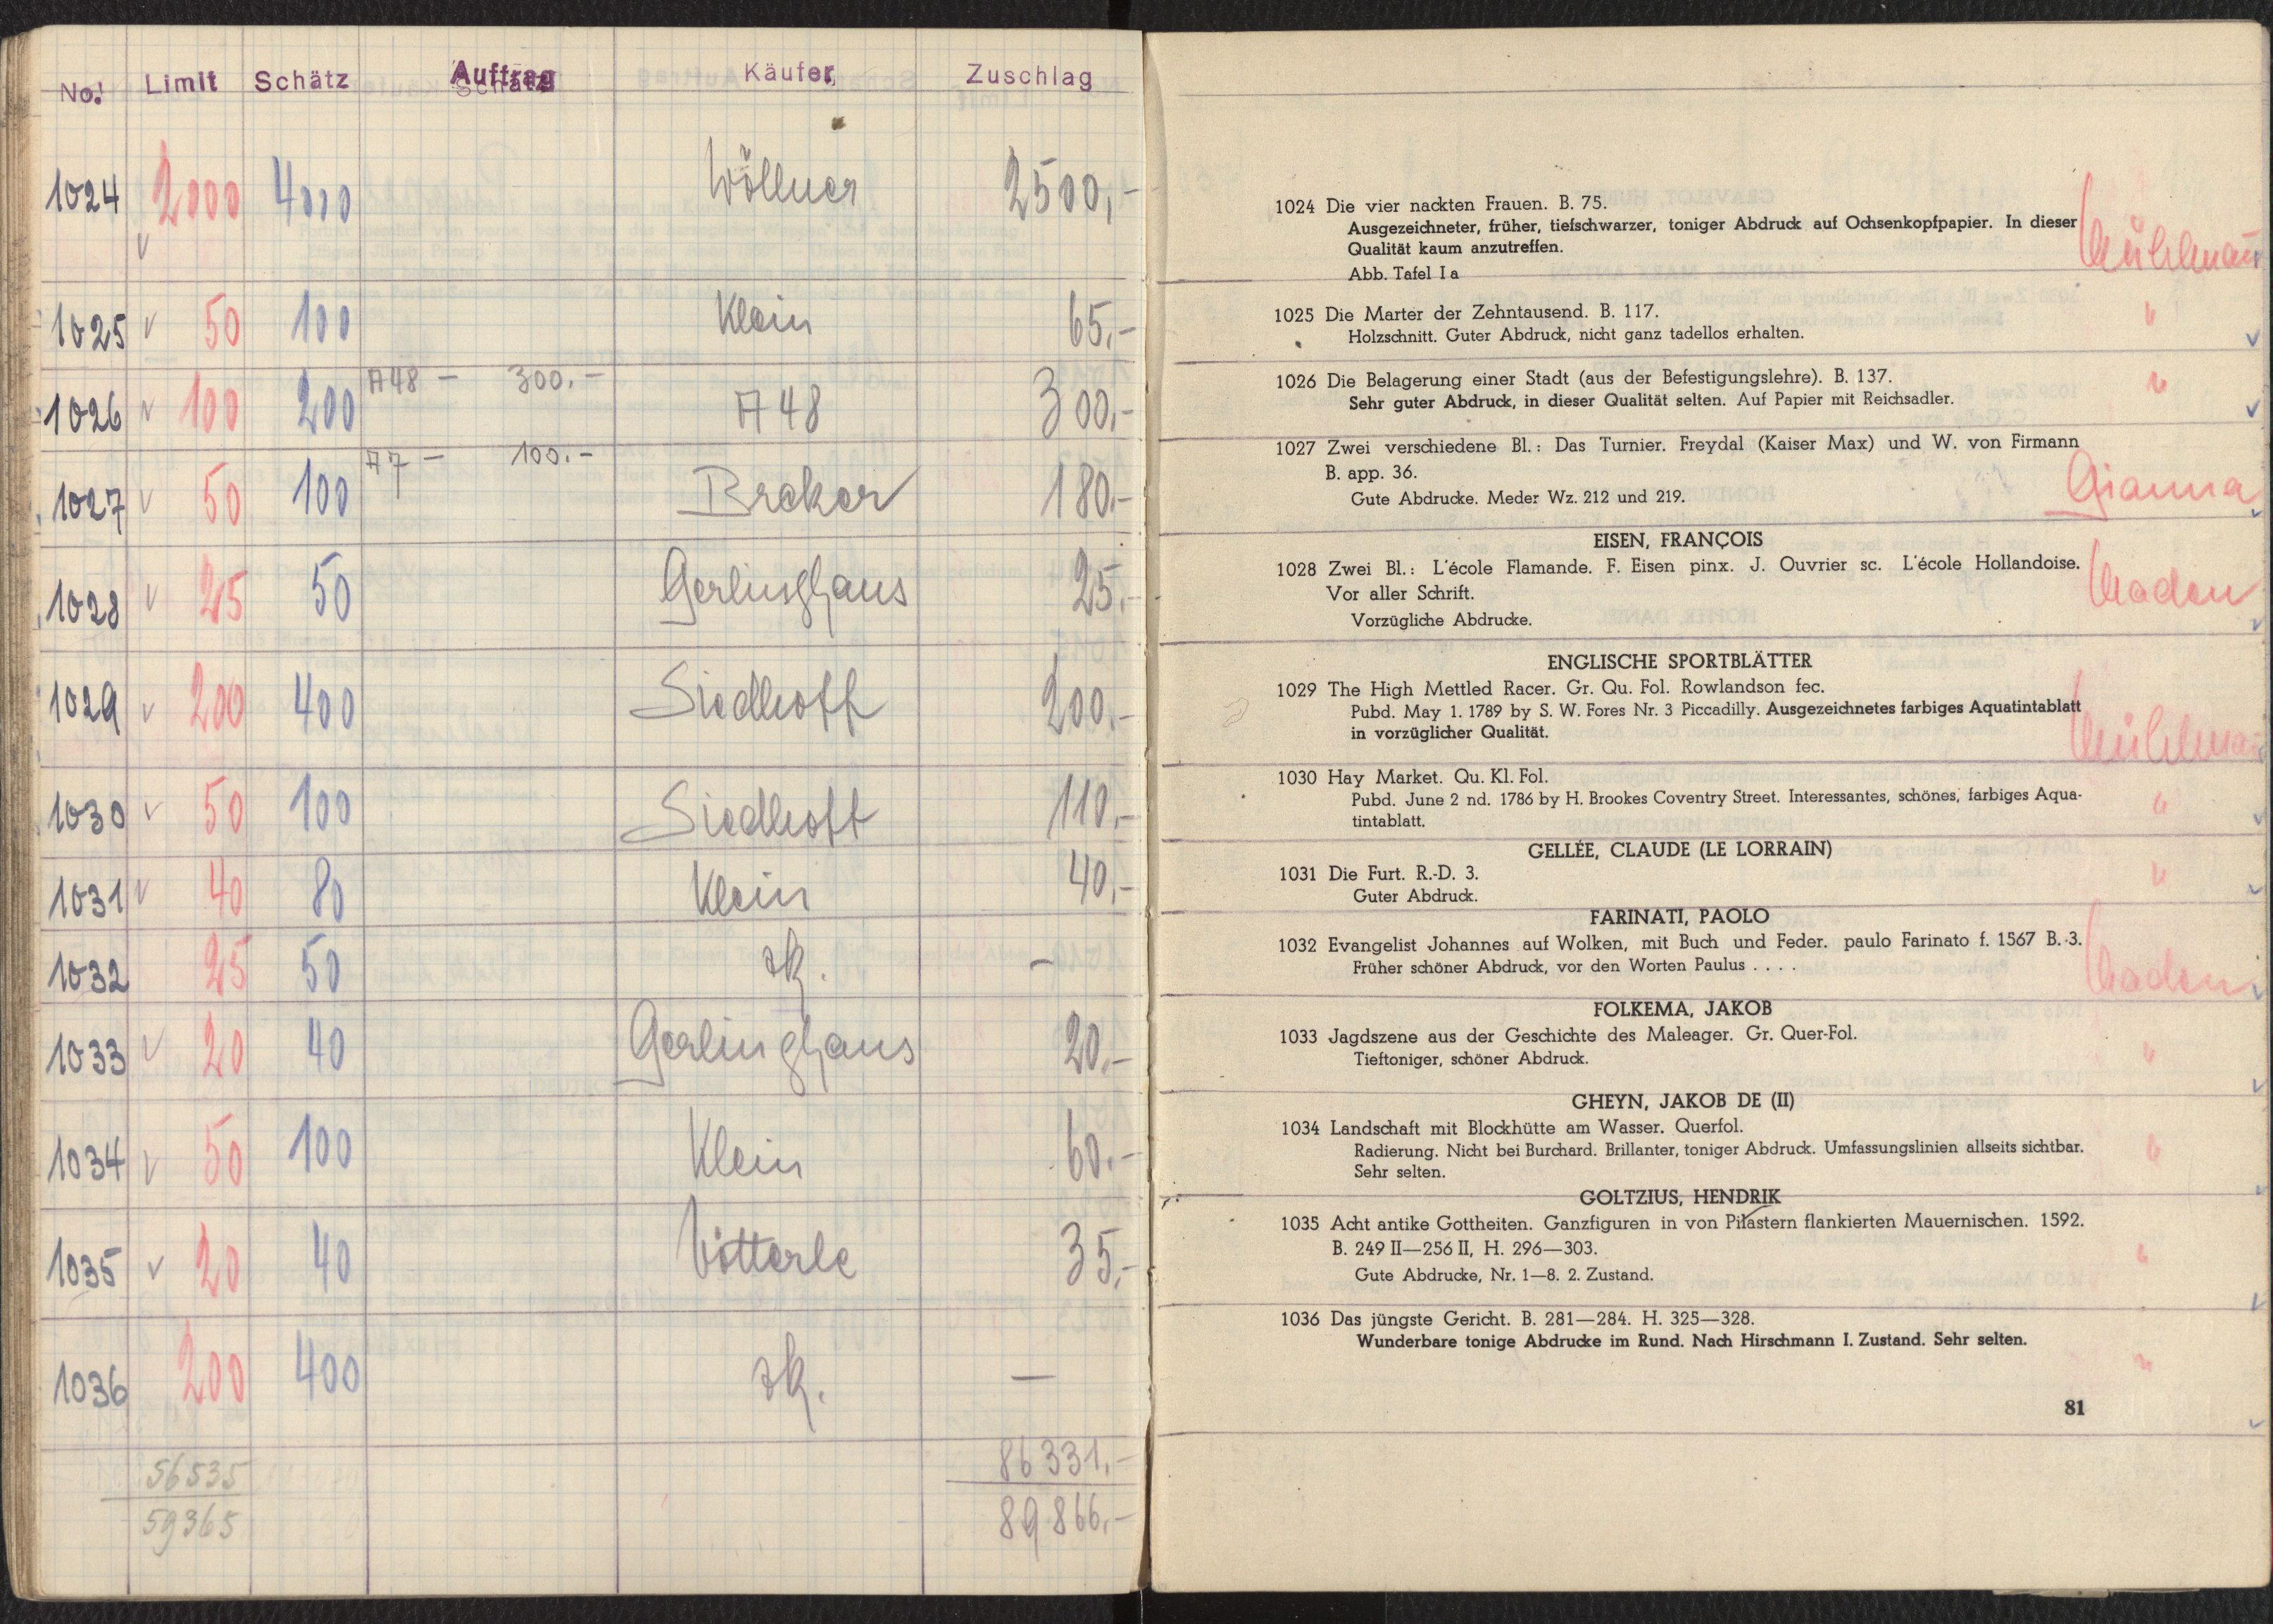 No. Limit Schätz Auftrag Käufer Zuschlag
1024 2000 4000 Wöllner 2500,-
1025 50 100 Klein 65,-
A 48 - 300.-
1026 100 200 A 48 300,-
A 7 - 100.-
1027 50 100 Breker 180.-
1028 25 50 Gerlinghaus 25,-
1029 200 400 Siedhoff 200,-
1030 50 100 Siedhoff 110,-
1031 40 80 Klein 40,-
1032 25 50 zk. -
1033 20 40 Gerlinghaus 20.-
1034 50 100 Klein 60.-
1035 20 40 Vötterle 35,-
1036 200 400 zk. -
56535 86331,-
59365 89866,-
1024 Die vier nackten Frauen. B. 75.
Ausgezeichneter, früher, tiefschwarzer, toniger Abdruck auf Ochsenkopfpapier. In dieser
Qualität kaum anzutreffen.
Abb. Tafel I a
1025 Die Marter der Zehntausend. B. 117.
Holzschnitt. Guter Abdruck, nicht ganz tadellos erhalten.
1026 Die Belagerung einer Stadt (aus der Befestigungslehre). B. 137.
Sehr guter Abdruck, in dieser Qualität selten. Auf Papier mit Reichsadler.
1027 Zwei verschiedene Bl.: Das Turnier. Freydal (Kaiser Max) und W. von Firmann
B. app. 36.
Gute Abdrucke. Meder Wz. 212 und 219.
Gianna
EISEN, FRANÇOIS
1028 Zwei Bl.: L'école Flamande. F. Eisen pinx. J. Ouvrier sc. L'école Hollandoise.
Vor aller Schrift.
Vorzügliche Abdrucke.
ENGLISCHE SPORTBLÄTTER
1029 The High Mettled Racer. Gr. Qu. Fol. Rowlandson fec.
Pubd. May 1. 1789 by S. W. Fores Nr. 3 Piccadilly. Ausgezeichnetes farbiges Aquatintablatt
in vorzüglicher Qualität.
1030 Hay Market. Qu. Kl. Fol.
Pubd. June 2 nd. 1786 by H. Brookes Coventry Street. Interessantes, schönes, farbiges Aqua-
tintablatt.
GELLÉE, CLAUDE (LE LORRAIN)
1031 Die Furt. R.-D. 3.
Guter Abdruck.
FARINATI, PAOLO
1032 Evangelist Johannes auf Wolken, mit Buch und Feder. paulo Farinato f. 1567 B. 3.
Früher schöner Abdruck, vor den Worten Paulus . . . .
FOLKEMA, JAKOB
1033 Jagdszene aus der Geschichte des Maleager. Gr. Quer-Fol.
Tieftoniger, schöner Abdruck.
GHEYN, JAKOB DE (II)
1034 Landschaft mit Blockhütte am Wasser. Querfol.
Radierung. Nicht bei Burchard. Brillanter, toniger Abdruck. Umfassungslinien allseits sichtbar.
Sehr selten.
GOLTZIUS, HENDRIK
1035 Acht antike Gottheiten. Ganzfiguren in von Pilastern flankierten Mauernischen. 1592.
B. 249 II—256 II, H. 296—303.
Gute Abdrucke, Nr. 1—8. 2. Zustand.
1036 Das jüngste Gericht. B. 281—284. H. 325—328.
Wunderbare tonige Abdrucke im Rund. Nach Hirschmann I. Zustand. Sehr selten.
81